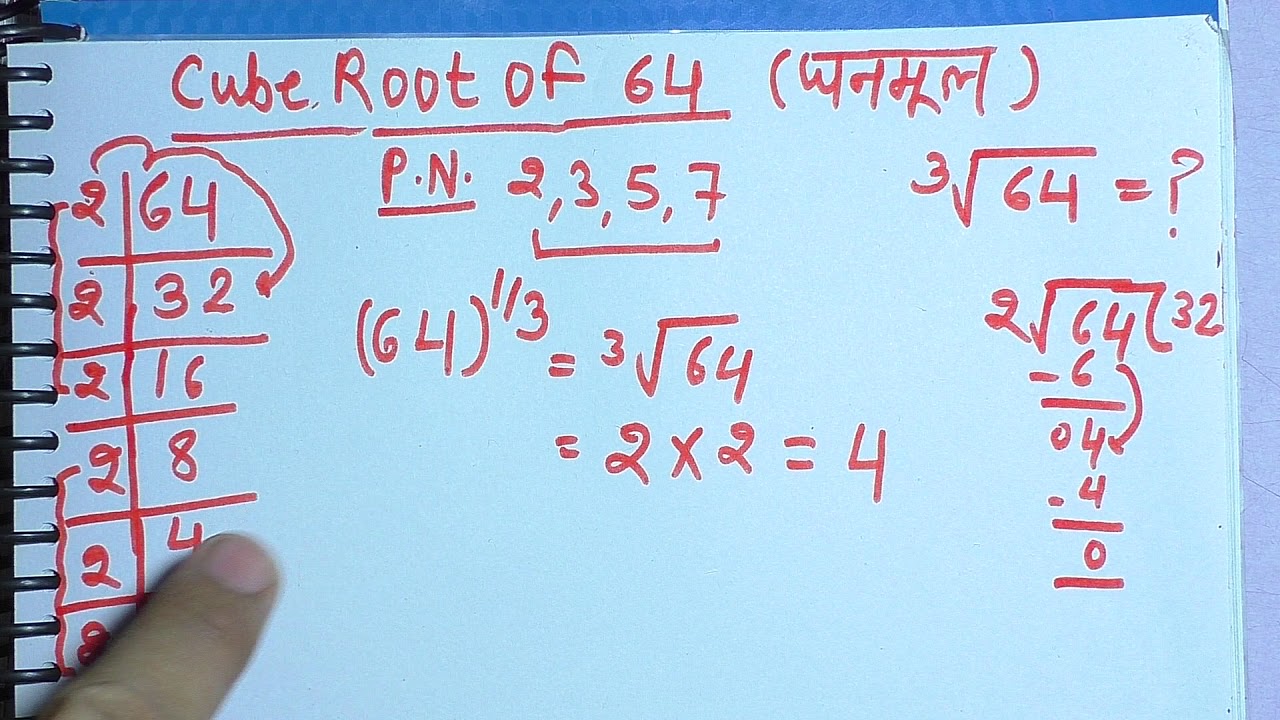 Cube Root of 64 (घनमूल)
P.N. 2,3,5,7
³√64 = ?
2 | 64
2 | 32
2 | 16
2 | 8
2 | 4
(64)^1/3 = ³√64
= 2 × 2 = 4
2√64(32
-6
04
-4
0